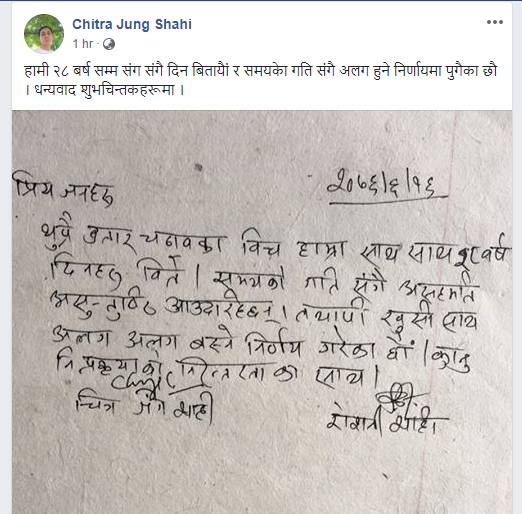 Chitra Jung Shahi
1 hr ·
हामी २८ बर्ष सम्म संग संगै दिन बितायौं र समयको गति संगै अलग हुने निर्णयमा पुगेका छौ
। धन्यवाद शुभचिन्तकहरूमा ।
२०७६/६/१६
प्रिय जनहरु
थुप्रै उतार चढावका विच हाम्रा साथ साथ २८ वर्ष
दिनहरु विते । समयको गति संगै असहमति
असन्तुष्ठि आउदारहेछन् । तथापी खुसी साथ
अलग अलग बस्ने निर्णय गरेका छौं ।
निरन्तरता का साथ ।
चित्र जंग शाही
शाही